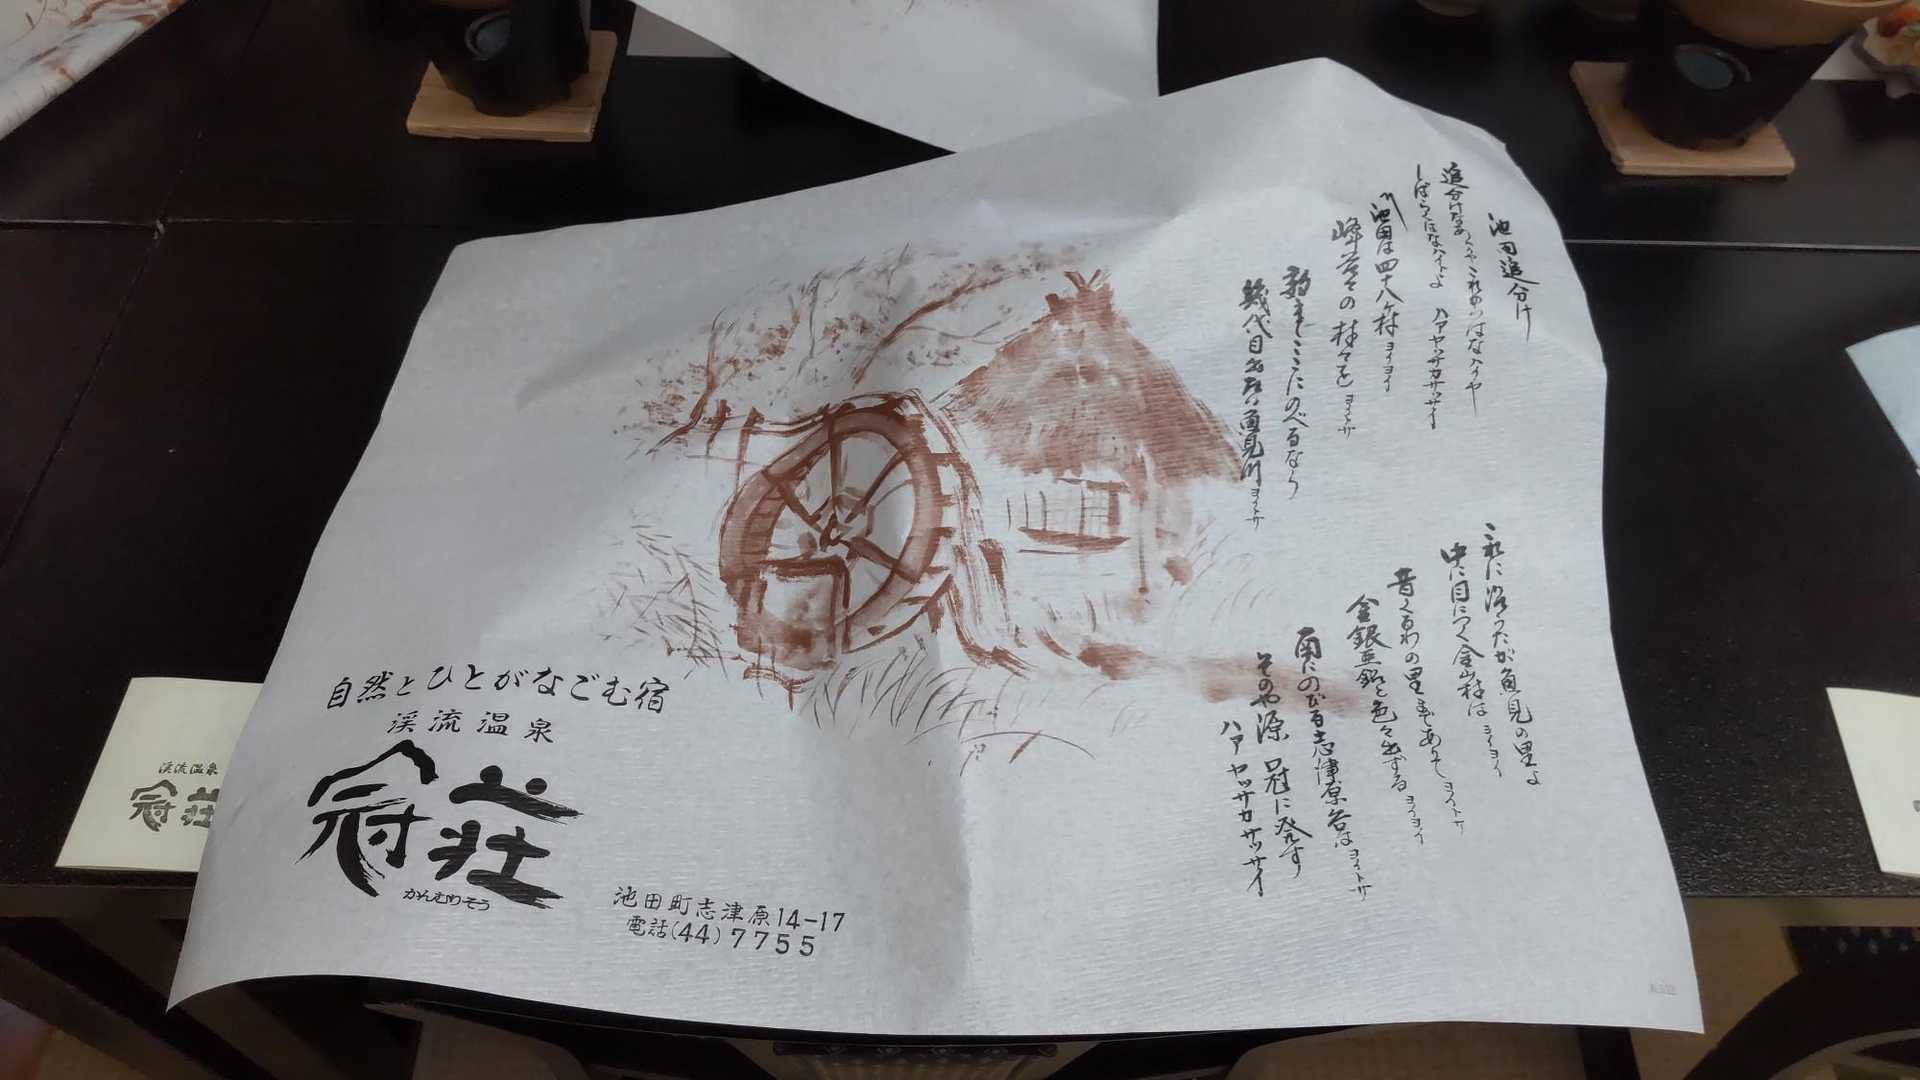 池田追分け
追分けなあくゝやこれからはなハイヤ
しばらくはなハイトよ ハアヤッサカサッサイ
池田は四十八ヶ村 ヨイヨイ
峰谷々の村々を ヨイトサ
韵ましここにのべるなら
幾代目出たい魚見川 ヨイトサ
これに沿うたが魚見の里よ
中に目につく金山村は ヨイヨイ
昔くるわの里までありて ヨイトサ
金銀亜鉛と色々出する ヨイヨイ
南にのびる志津原谷は ヨイトサ
そのや源 冠に発す
ハア ヤッサカサッサイ
自然とひとがなごむ宿
渓流温泉
冠荘
かんむりそう
池田町志津原14-17
電話(44)7755
渓流温泉
冠荘